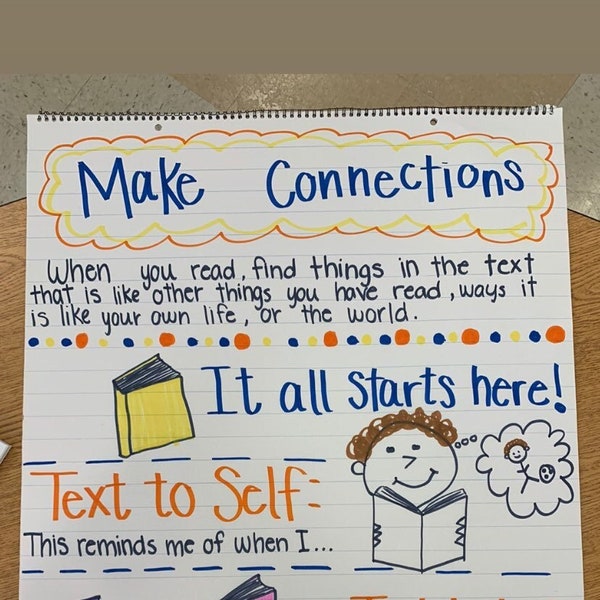 Make Connections
When you read, find things in the text
that is like other things you have read, ways it
is like your own life, or the world.
It all starts here!
Text to Self:
This reminds me of when I...